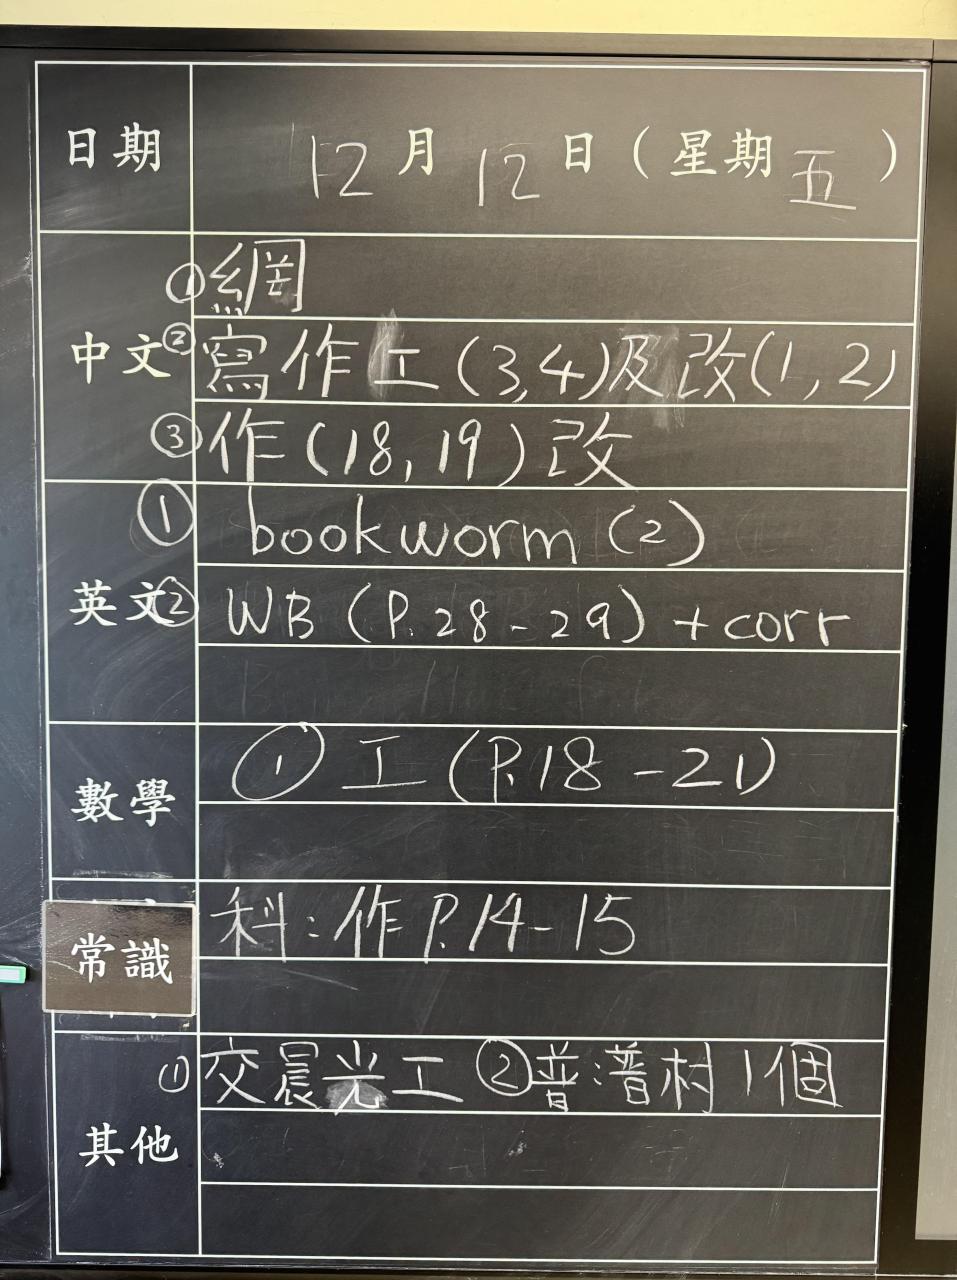 日期 12月12日(星期五)
中文
①網
②寫作工(3,4)及改(1,2)
③作(18,19)改
英文
① bookworm (2)
② WB (P.28-29) + corr
數學
① 工(P.18-21)
常識
科:作P.14-15
其他
①交晨光工 ②普:譜村1個